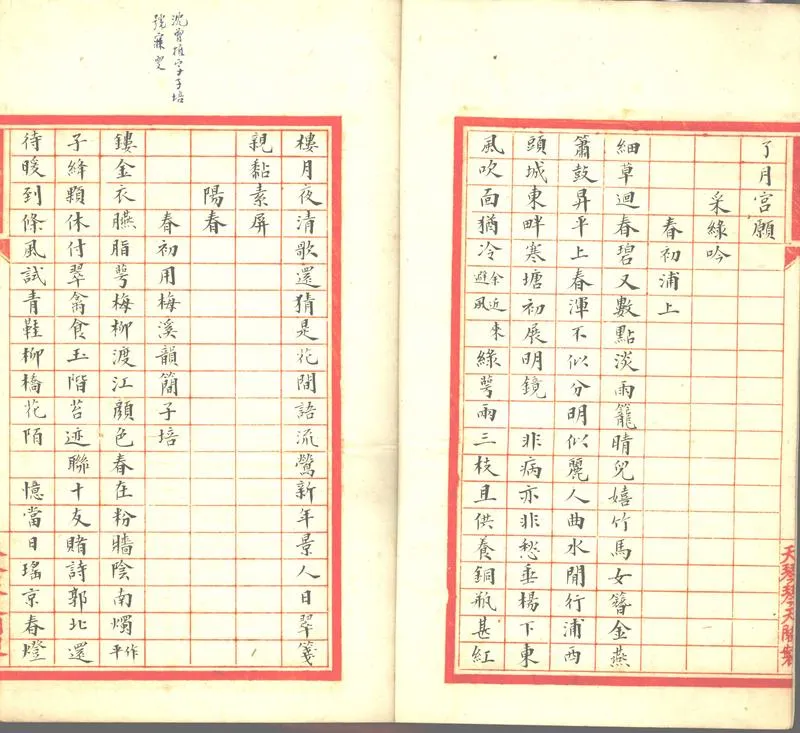 了月宮願
采綠吟
春初浦上
細草迴春碧又數點淡雨籠晴兒嬉竹馬女簪金燕
簫鼓昇平上春渾不似分明似麗人曲水閒行浦西
頭城東畔寒塘初展明鏡　非病亦非愁垂楊下東
風吹面猶冷余近來避風綠萼雨三枝且供養銅瓶甚紅
樓月夜清歌還猜是花間語流鶯新年景人日翠箋
親黏素屏
陽春
春初用梅溪韻簡子培
鏤金衣臙脂萼梅柳渡江顏色春在粉牆陰南燭作平
子絳顆休付翠禽食玉階苔迹聯十友賭詩郭北還
待暖到條風試青鞋柳橋花陌　憶當日瑤京春燈
沈曾植字子培
號寐叟
天琴琴天閣製